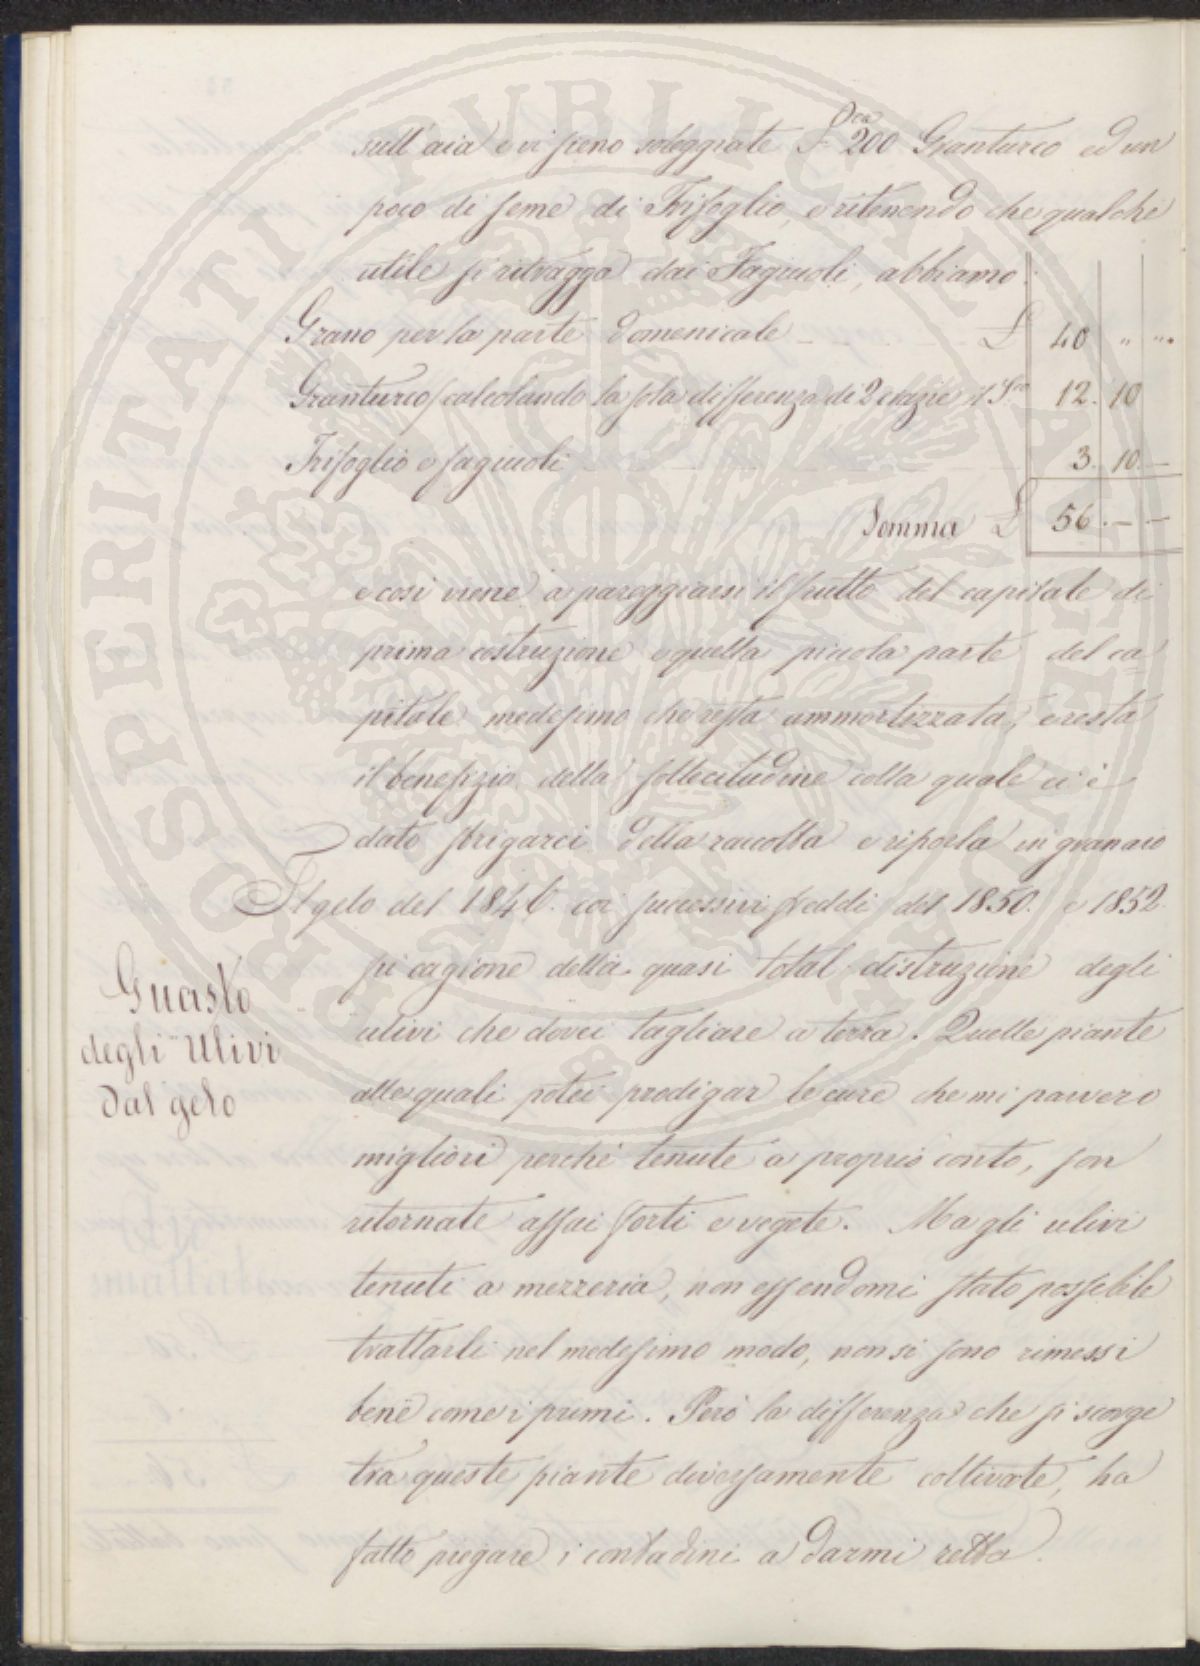 sull'aia e vi sieno soleggiate S.ca 200 Granturco ed un
poco di seme di Trifoglio, e ritenendo che qualche
utile si ritragga dai Fagiuoli, abbiamo:
Grano per la parte Domenicale £ 40 " "
Granturco calcolando la sola differenza di 2 crazie il S.co 12. 10
Trifoglio e fagiuoli 3. 10. —
Somma £ 56. — —
e così viene a pareggiarsi il frutto del capitale di
prima costruzione e quella piccola parte del ca
pitale medesimo che resta ammortizzata, e resta
il benefizio della sollecitudine colla quale ci è
dato sbrigarci della raccolta e riporla in granaio
Il gelo del 1846. coi successivi freddi del 1850. e 1852.
fu cagione della quasi total distruzione degli
ulivi che dovei tagliare a terra. Quelle piante
alle quali potei prodigar le cure che mi parvero
migliori perchè tenute a proprio conto, son
ritornate assai forti e vegete. Ma gli ulivi
tenuti a mezzeria, non essendomi stato possibile
trattarli nel medesimo modo, non si sono rimessi
bene come i primi. Però la differenza che si scorge
tra queste piante diversamente coltivate, ha
fatto piegare i contadini a darmi retta.
Guasto
degli Ulivi
dal gelo
PROSPERITATI PVBLICAE AVGENDAE